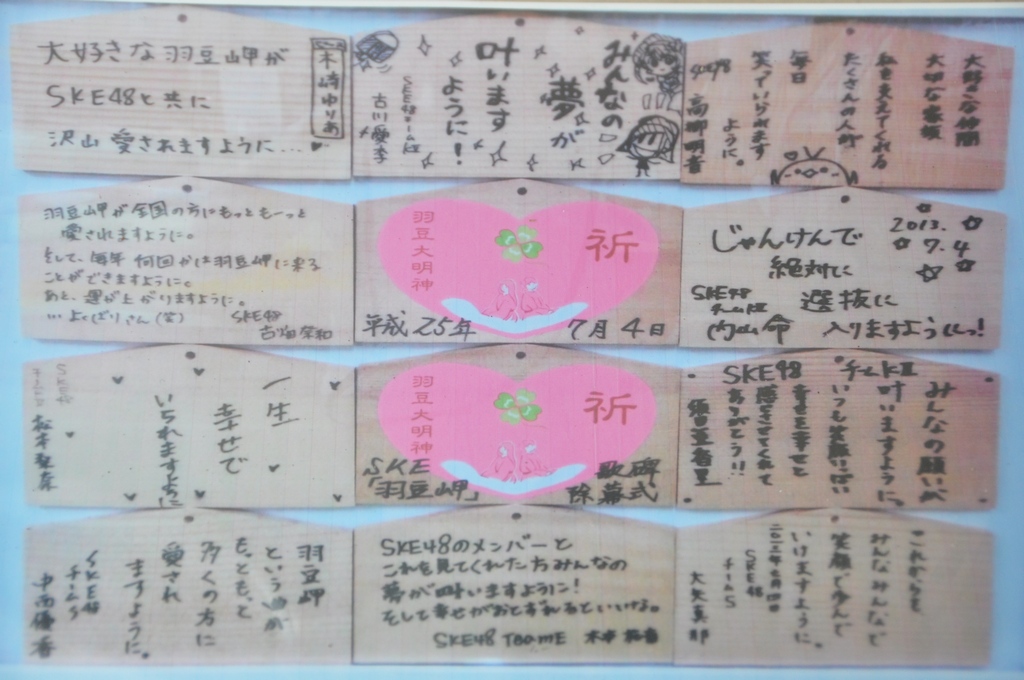 大好きな羽豆岬が
SKE48と共に
沢山愛されますように…
木﨑ゆりあ
みんなの
夢が
叶います
ように！
SKE48チームKII
古川愛李
大好きな仲間
大切な家族
私を支えてくれる
たくさんの人が
毎日
笑っていられます
ように。
SKE48
高柳明音
羽豆岬が全国の方にもっともーっと
愛されますように。
そして、毎年何回かは羽豆岬に来る
ことができますように。
あと、運が上がりますように。
いよくばりさん(笑)
SKE48
古畑奈和
羽豆大明神
祈
平成25年 7月4日
2013.
7.4
じゃんけんで
絶対に
選抜に
入りますようにっ！
SKE48
チームKII
内山命
一生
幸せで
いられますように
SKE48
チームKII
松本梨奈
羽豆大明神
祈
SKE
「羽豆岬」
歌碑
除幕式
SKE48 チームKII
みんなの願いが
叶いますように。
いつも笑顔いっぱい
幸せを幸せと
感じさせてくれて
ありがとう!!
須田亜香里
羽豆岬
という曲が
もっともっと
多くの方に
愛され
ますように。
SKE48
チームS
中西優香
SKE48のメンバーと
これを見てくれた方みんなの
夢が叶いますように！
そして幸せがおとずれるといいな。
SKE48 TeamE
これからも
みんなみんなで
笑顔で歩んで
いけますように。
SKE48
チームS
大矢真那